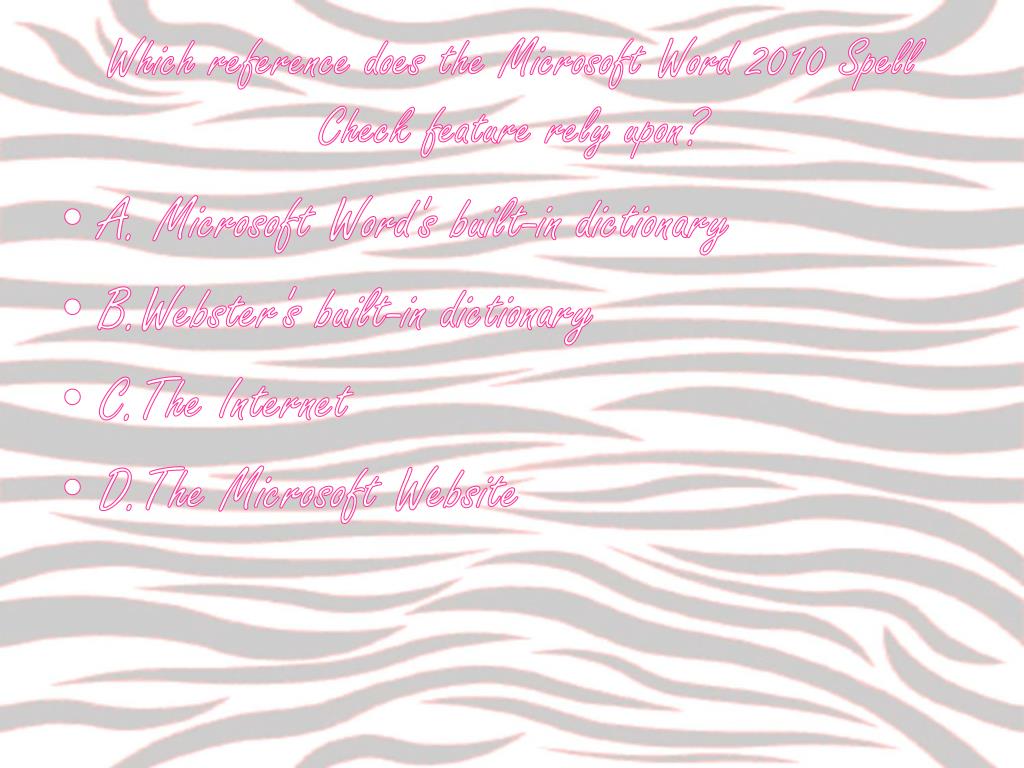 Which reference does the Microsoft Word 2010 Spell
Check feature rely upon?
• A. Microsoft Word's built-in dictionary
• B.Webster's built-in dictionary
• C.The Internet
• D.The Microsoft Website